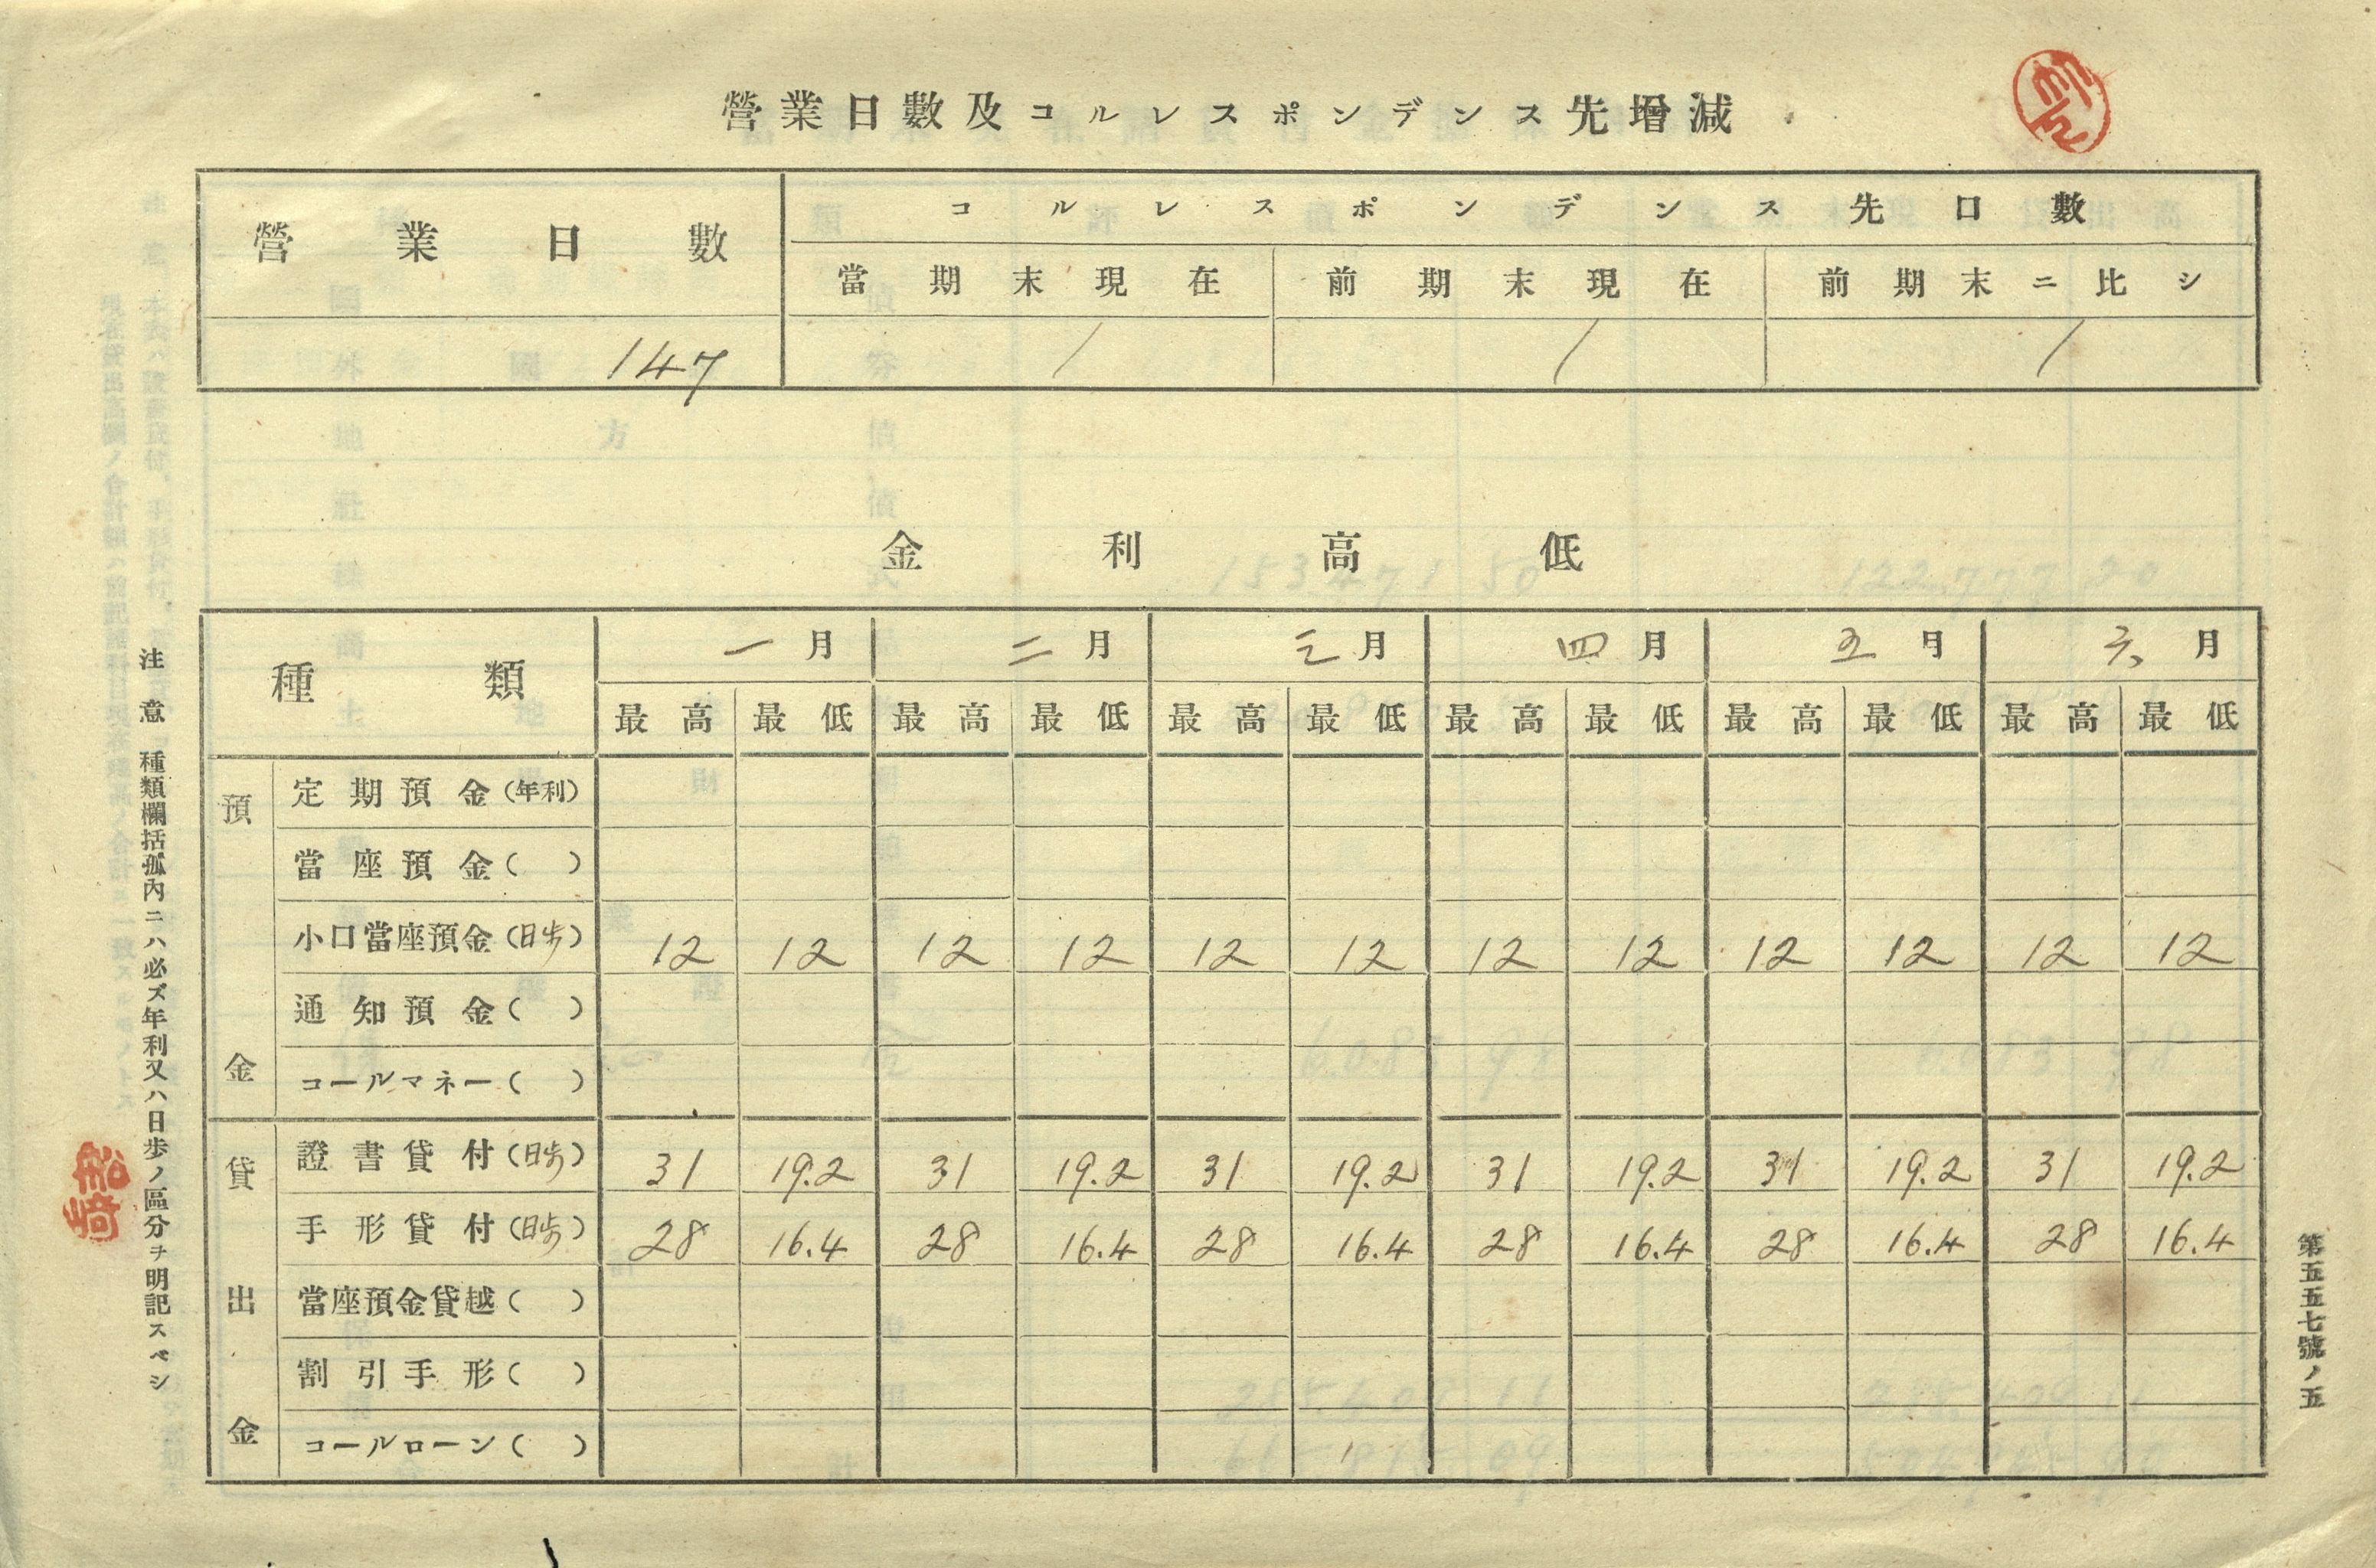 營業日數及コルレスポンデンス先增減
營業日數 コルレスポンデンス先口數
當期末現在 前期末現在 前期末ニ比シ
147 / / /
金利高低
種類 一月 二月 三月 四月 五月 六月
最高 最低 最高 最低 最高 最低 最高 最低 最高 最低 最高 最低
預金
定期預金(年利)
當座預金( )
小口當座預金(日歩) 12 12 12 12 12 12 12 12 12 12 12 12
通知預金( )
コールマネー( )
貸出金
證書貸付(日歩) 31 19.2 31 19.2 31 19.2 31 19.2 31 19.2 31 19.2
手形貸付(日歩) 28 16.4 28 16.4 28 16.4 28 16.4 28 16.4 28 16.4
當座預金貸越( )
割引手形( )
コールローン( )
注意 種類欄括孤內ニハ必ズ年利又ハ日歩ノ區分ヲ明記スベシ
船崎
第五五七號ノ五